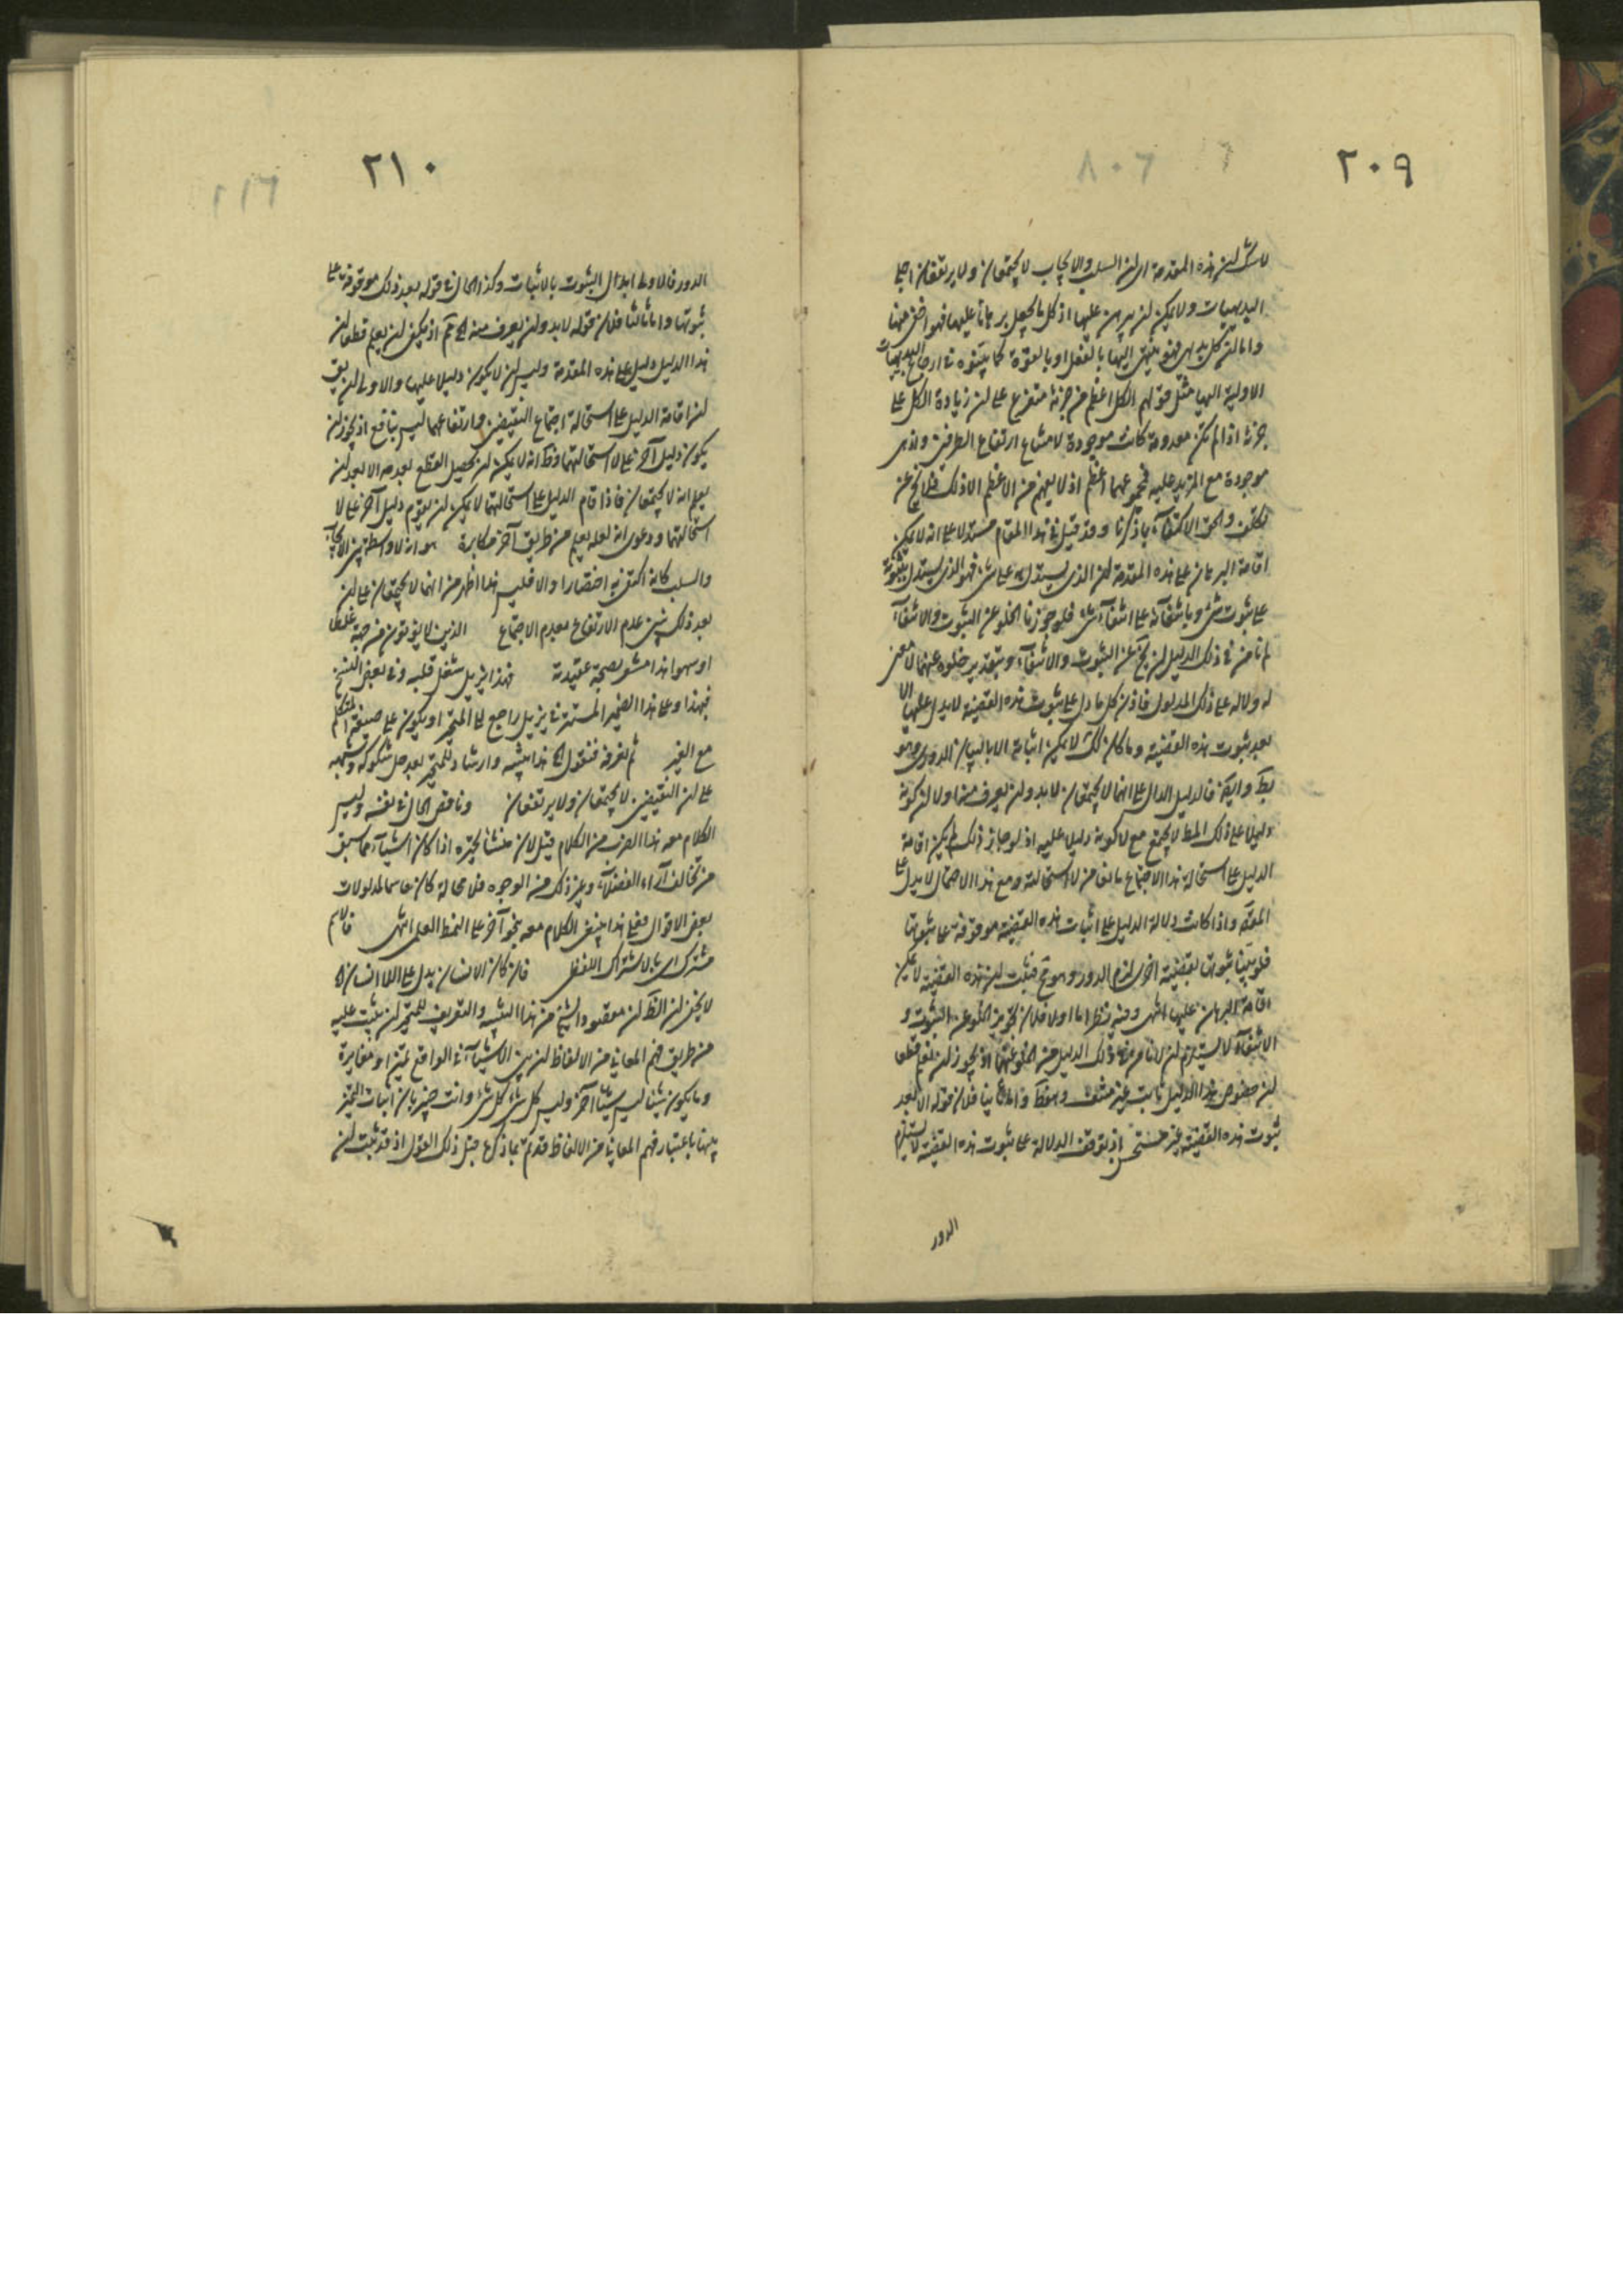 ٢٠٩
لا شك ان هذه المقدمة اى ان السلب والايجاب لا يجتمعان ولا يرتفعان اجلى
البديهيات ولا يمكن ان يبرهن عليها اذ كل ما يجعل برهانا عليها فهو اخفى منها
واما ان كل بديهى فهو ينتهى اليها بالفعل او بالقوة كما بينوه فى ارجاع البديهيات
الاولية اليها مثل قولهم الكل اعظم من جزئه متفرع على ان زيادة الكل على
جزئه اذا لم تكن معدومة كانت موجودة لامتناع ارتفاع الطرفين واذ هى
موجودة مع المزيد عليه فمجموعهما اعظم اذ لا يفهم من الاعظم الا ذلك فلا يخ عن
تكلف والحق الاكتفاء بما ذكرنا وقد قيل فى هذا المقام مستدلا على انه لا يمكن
اقامة البرهان على هذه المقدمة ان الذى يستدل به على شئ فهو الذى يستدل بثبوته
على ثبوت شئ وبانتفائه على انتفاء شئ فلو جوزنا الخلو عن الثبوت والانتفاء
لم نامن فى ذلك الدليل ان يخ عن الثبوت والانتفاء وبتقدير خلوه عنهما لا يبقى
له دلالة على ذلك المدلول فاذن كل ما دل على ثبوت هذه القضية لا يدل عليها الا
بعد ثبوت هذه القضية وما كان كك لا يمكن اثباته الا بالبيان الدورى وهو
بط وايضا فالدليل الدال على انهما لا يجتمعان لا بد وان يعرف منه اولا ان كونه
دليلا على ذلك المط لا يجتمع مع لا كونه دليلا عليه اذ لو جاز ذلك لم يكن اقامة
الدليل على استحالة هذا الاجتماع مانعا من لا استحالته ومع هذا الاحتمال لا يدل على
المقصود واذا كانت دلالة الدليل على اثبات هذه القضية موقوفة على ثبوتها
فلو بينا ثبوتها بقضية اخرى لزم الدور وهو مح فثبت ان هذه القضية لا يمكن
اقامة البرهان عليها انتهى وفيه نظر اما اولا فلان تجويز الخلو عن الثبوت و
الانتفاء لا يستلزم ان لا نامن فى ذلك الدليل من الخلو عنهما اذ يجوز ان نعلم قطعا
ان خصوص هذا الدليل ثابت غير منتف وهو ظ واما ثانيا فلان قوله الا بعد
ثبوت هذه القضية غير مستحسن اذ توقف الدلالة على ثبوت هذه القضية لا يستلزم
الدور
٢١٠
الدور فالاولى ابدال الثبوت بالاثبات وكذا الحال فى قوله بعد ذلك موقوفة على
ثبوتها واما ثالثا فلان قوله لا بد وان يعرف منه الخ مم اذ يمكن ان يعلم قطعا ان
هذا الدليل دليل على هذه المقدمة وليس ان لا يكون دليلا عليها والاولى ان يق
ان اقامة الدليل على استحالة اجتماع النقيضين وارتفاعهما ليس بنافع اذ يجوز ان
يكون دليل آخر على لا استحالتهما وظ انه لا يمكن ان يحصل القطع بعدمه الا بعد ان
يعلم انه لا يجتمعان فاذا قام الدليل على استحالتهما لا يمكن ان يقوم دليل آخر على لا
استحالتهما ودعوى انه لعله يعلم من طريق آخر مكابرة هو انه لا واسطة بين الايجاب
والسلب كانه اكتفى به اختصارا والا فليس هذا اظهر من انهما لا يجتمعان على ان
بعد ذلك بين عدم الارتفاع بعدم الاجتماع الذين لا يؤتون من جهة غلط
او سهو هذا مشعر بصحة عقيدته فهذا يزيل شغل قلبه وفى بعض النسخ
فبهذا وعلى هذا الضمير المستتر فى يزيل راجع الى المتحير او يكون على صيغة المتكلم
مع الغير ثم نعرفه فنقول الخ هذا تنبيه وارشاد للمتحير بعد حل شكوكه وشبهه
على ان النقيضين لا يجتمعان ولا يرتفعان وناقض الحال فى نفسه وليس
الكلام معه هذا الضرب من الكلام قيل لان منشا تحيره اذا كان اشياء مما سبق
من تخالف آراء الفضلاء وغير ذلك من الوجوه فلا محالة كان عالما بمدلولات
بعض الاقوال فعلى هذا ينبغى الكلام معه بنحو آخر على النمط العلمى انتهى فالاسم
مشترك اى بالاشتراك اللفظى فان كان الانسان يدل على اللاانسان الخ
لا يخفى ان الظ ان مقصود الشيخ من هذا التنبيه والتعريف للمتحير ان يثبت عليه
من طريق فهم المعانى من الالفاظ ان بين الاشياء فى الواقع تميزا ومغايرة
وما يكون شيئا ليس شيئا آخر وليس كل شئ كل شئ وانت خبير بان اثبات التميز
بينها باعتبار فهم المعانى من الالفاظ قد تم بما ذكره قبل ذلك القول اذ قد ثبت ان